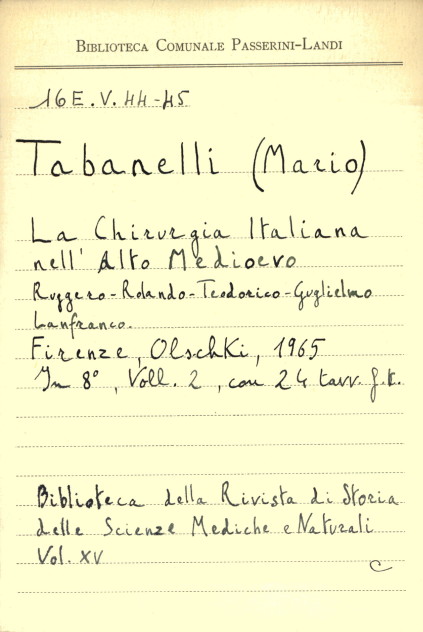 BIBLIOTECA COMUNALE PASSERINI-LANDI
16E.V.44-45
Tabanelli (Mario)
La Chirurgia Italiana
nell' Alto Medioevo
Ruggero-Rolando-Teodorico-Guglielmo
Lanfranco.
Firenze, Olschki, 1965
In 8°, Voll. 2, con 24 tavv. f.t.
Biblioteca della Rivista di Storia
delle Scienze Mediche e Naturali
Vol. XV
C